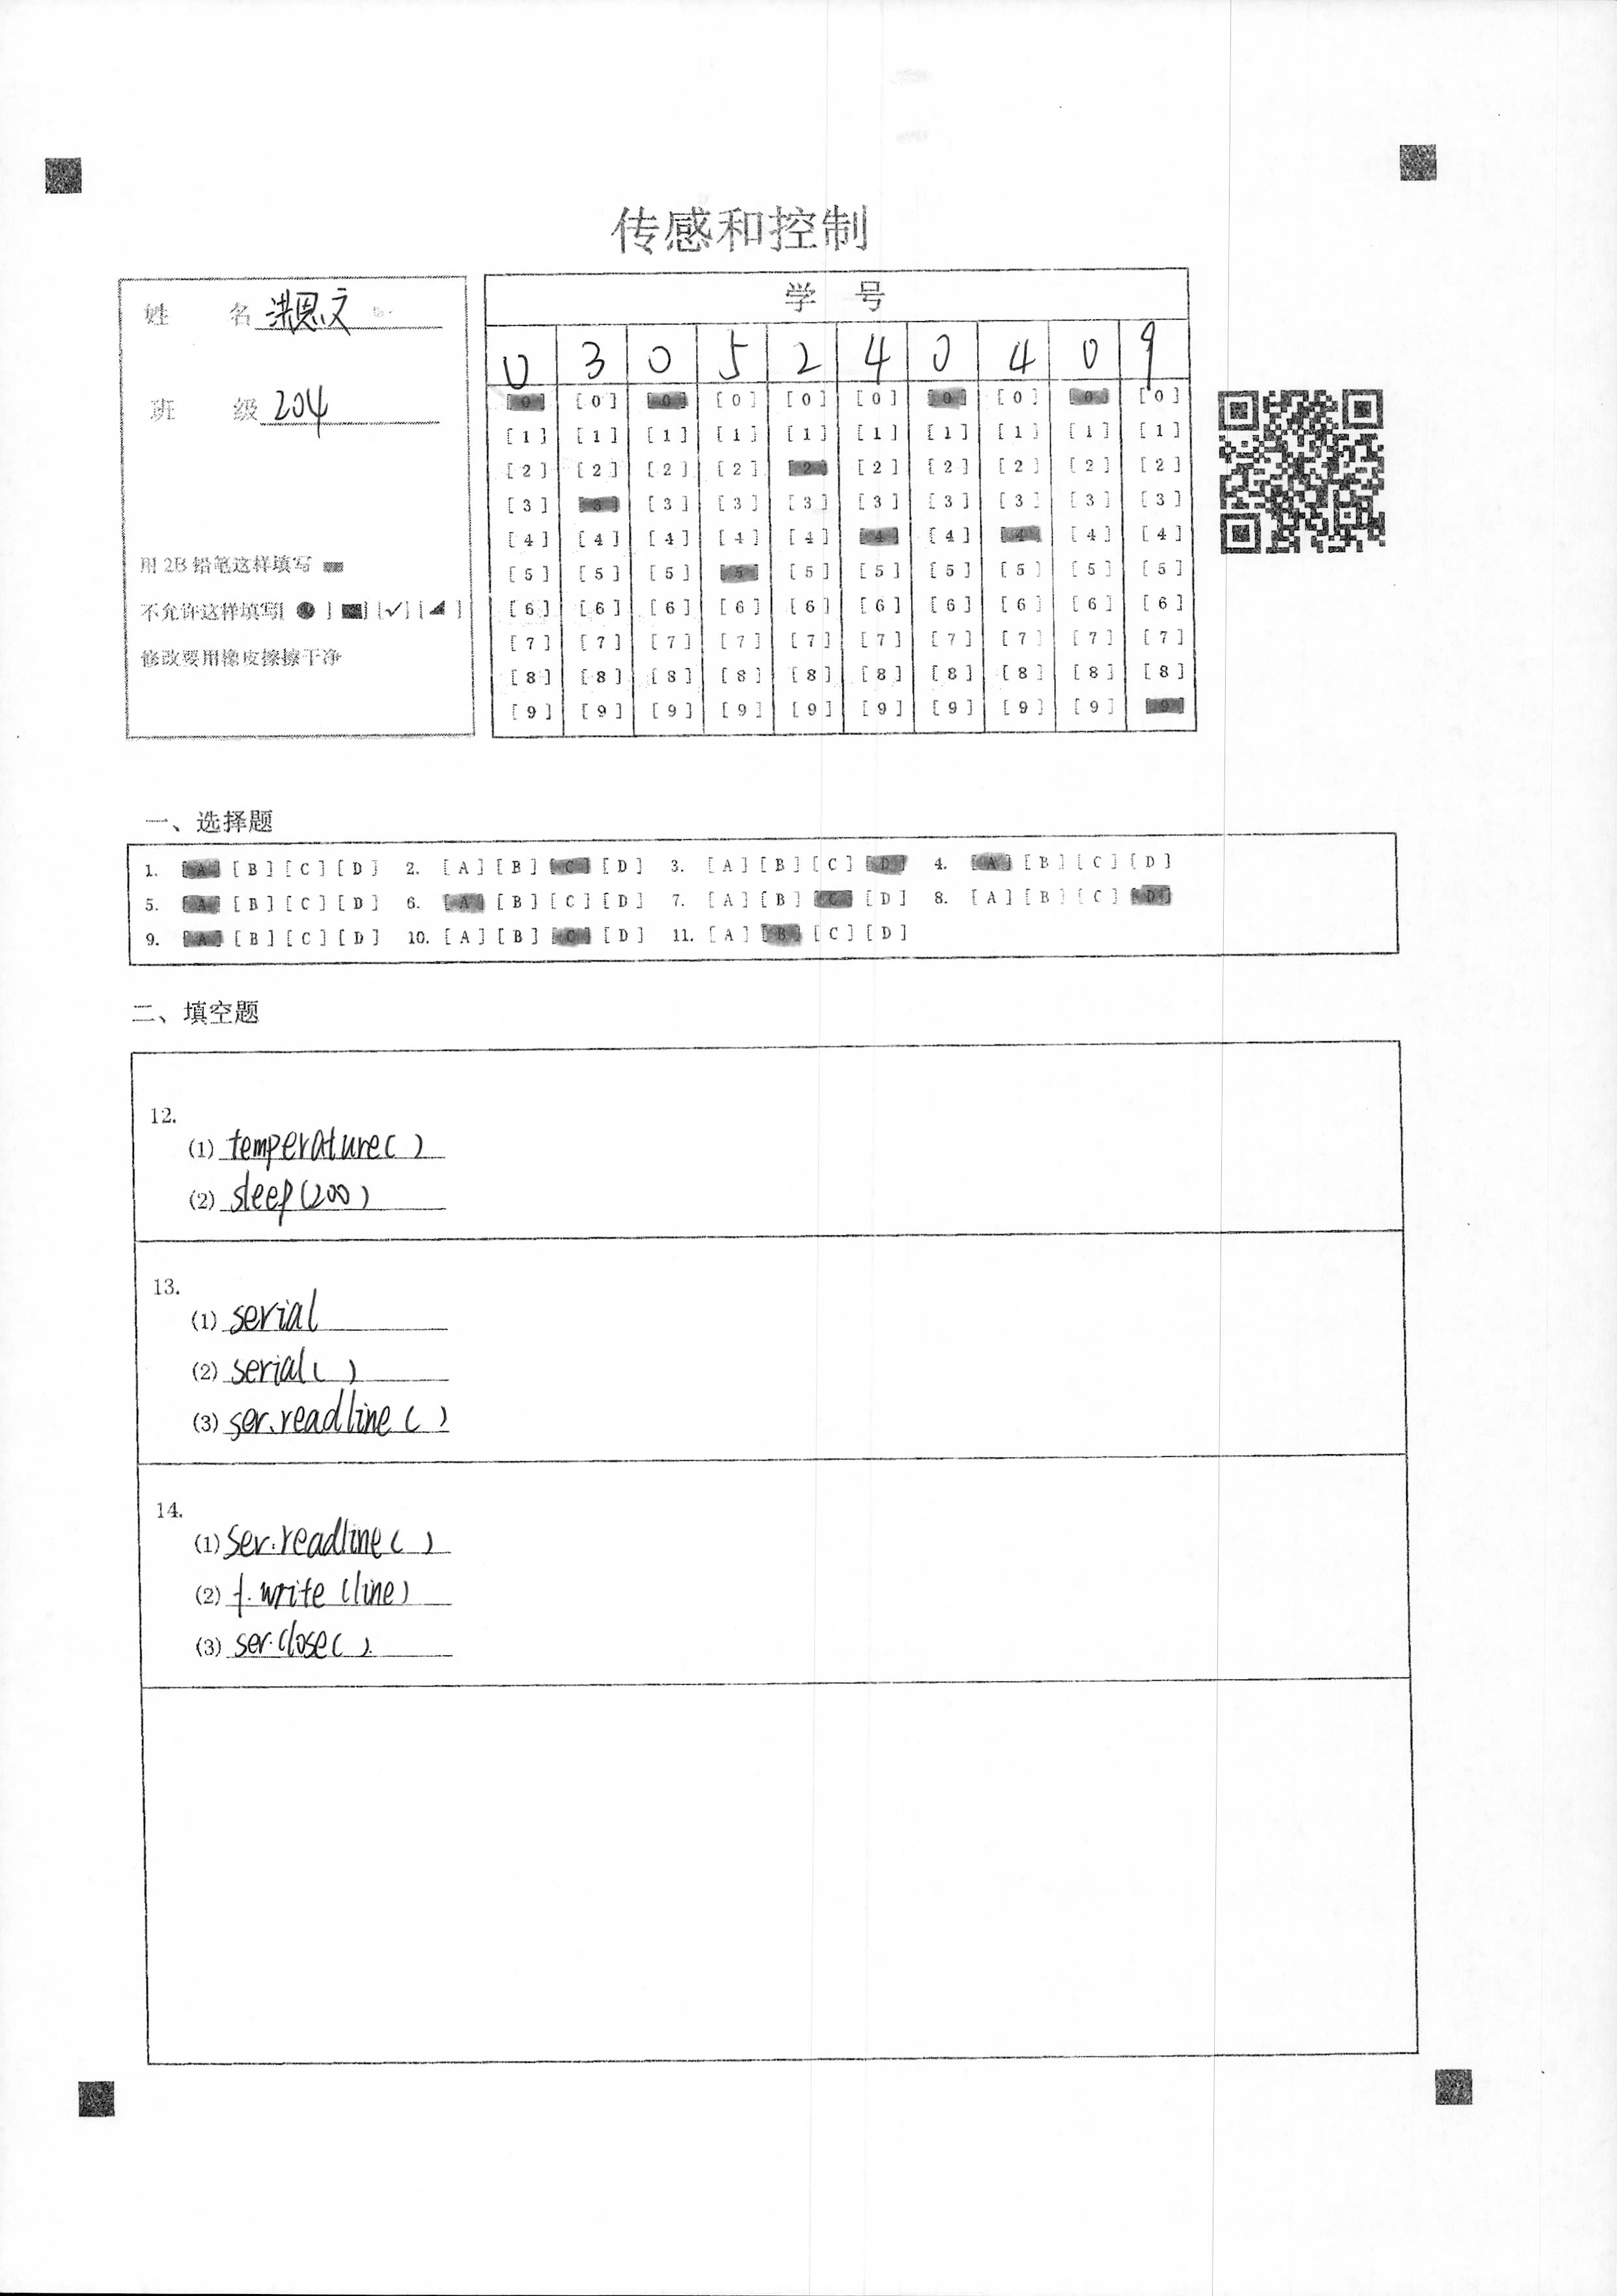 传感和控制
姓 名 洪恩文
班 级 204
用 2B 铅笔这样填写
不允许这样填写[ ] [ ] [✓] [ ]
修改要用橡皮擦擦干净
学 号
0 3 0 5 2 4 0 4 0 9
[0] [0] [0] [0] [0] [0] [0] [0] [0] [0]
[1] [1] [1] [1] [1] [1] [1] [1] [1] [1]
[2] [2] [2] [2] [2] [2] [2] [2] [2] [2]
[3] [3] [3] [3] [3] [3] [3] [3] [3] [3]
[4] [4] [4] [4] [4] [4] [4] [4] [4] [4]
[5] [5] [5] [5] [5] [5] [5] [5] [5] [5]
[6] [6] [6] [6] [6] [6] [6] [6] [6] [6]
[7] [7] [7] [7] [7] [7] [7] [7] [7] [7]
[8] [8] [8] [8] [8] [8] [8] [8] [8] [8]
[9] [9] [9] [9] [9] [9] [9] [9] [9] [9]
一、选择题
1. [A] [B] [C] [D] 2. [A] [B] [C] [D] 3. [A] [B] [C] [D] 4. [A] [B] [C] [D]
5. [A] [B] [C] [D] 6. [A] [B] [C] [D] 7. [A] [B] [C] [D] 8. [A] [B] [C] [D]
9. [A] [B] [C] [D] 10. [A] [B] [C] [D] 11. [A] [B] [C] [D]
二、填空题
12.
(1) temperature( )
(2) sleep(200)
13.
(1) serial
(2) serial( )
(3) ser.readline( )
14.
(1) ser.readline( )
(2) f.write(line)
(3) ser.close( )